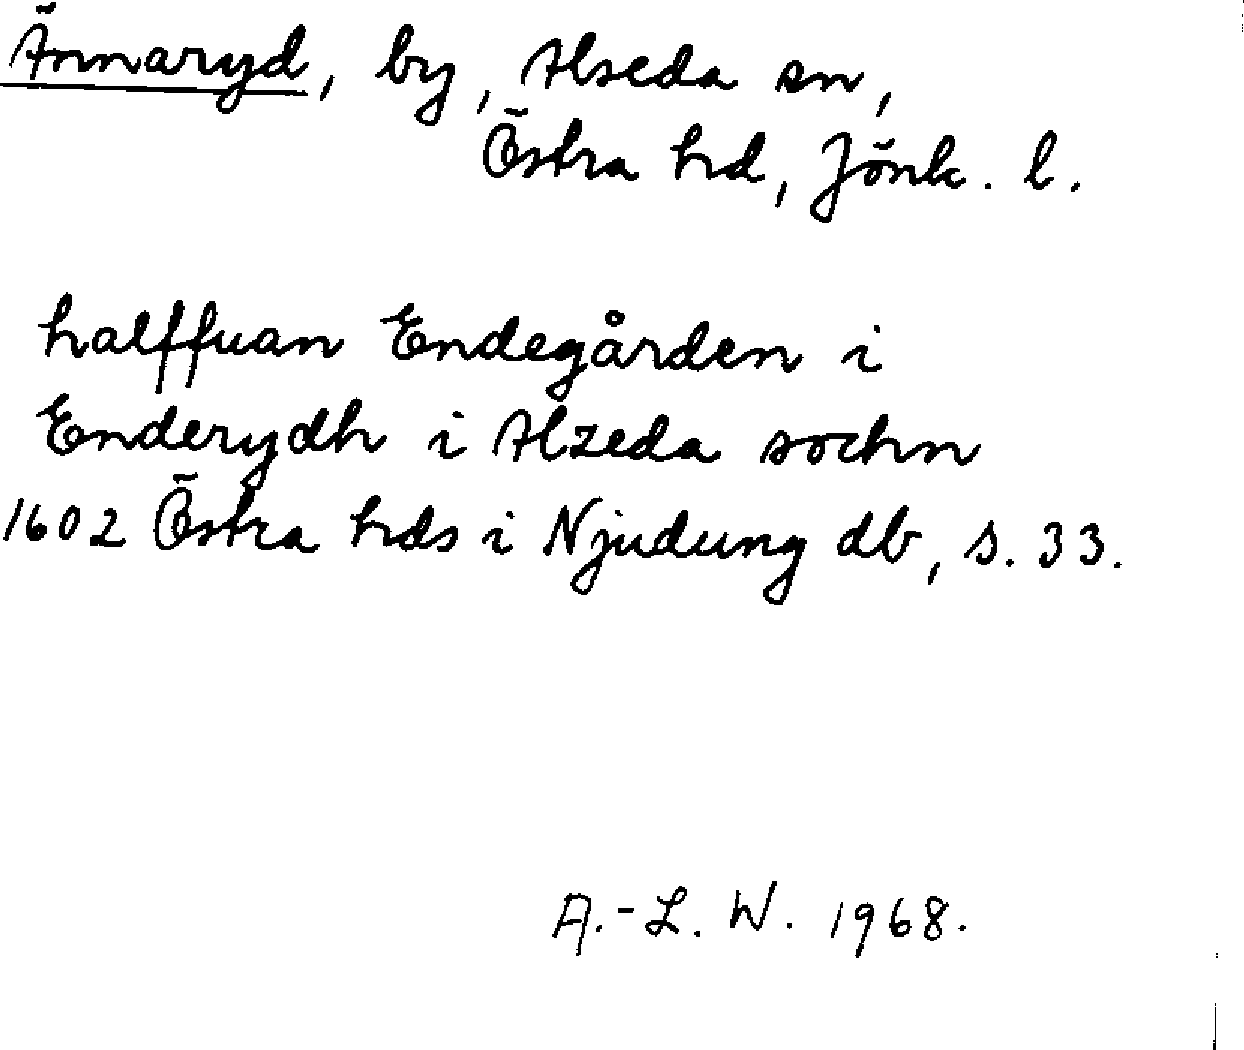 Ännaryd, by, Alseda sn,
Östra hd, Jönk. l.
halffuan Endegården i
Enderydh i Alzeda sochn
1602 Östra hds i Njudung db, s. 33.
A.-L. W. 1968.